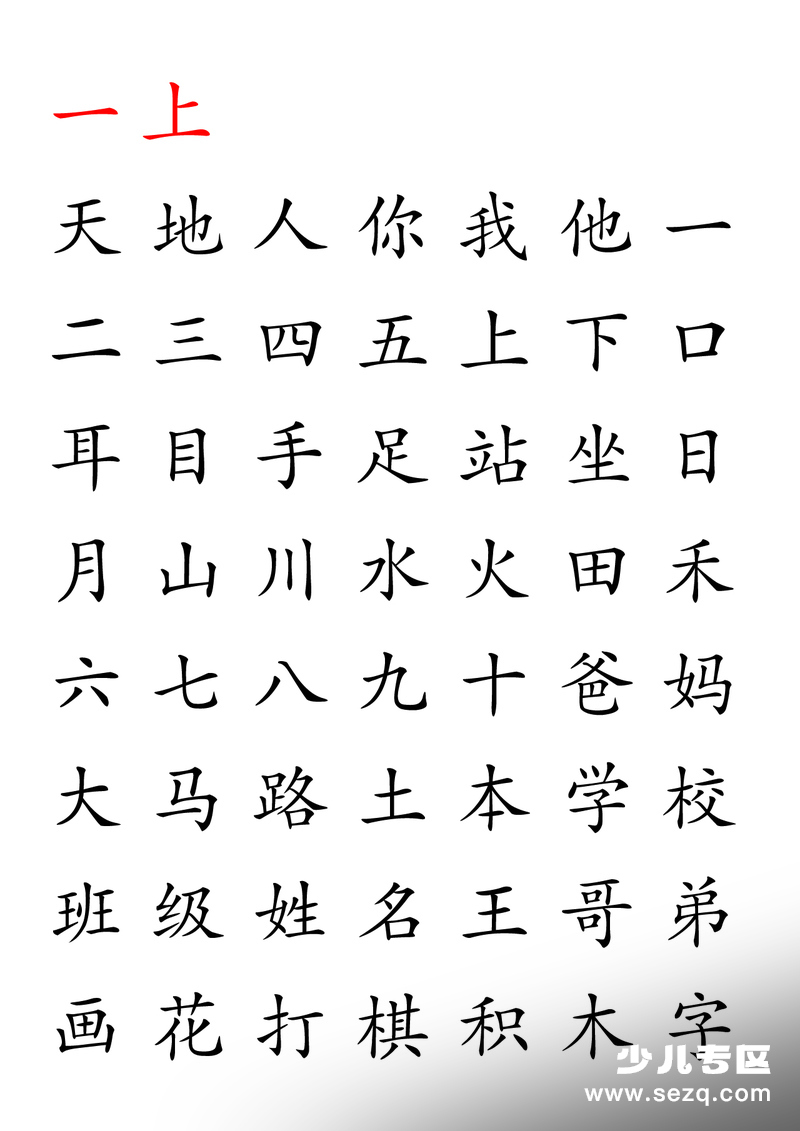 一 上
天 地 人 你 我 他 一
二 三 四 五 上 下 口
耳 目 手 足 站 坐 日
月 山 川 水 火 田 禾
六 七 八 九 十 爸 妈
大 马 路 土 本 学 校
班 级 姓 名 王 哥 弟
画 花 打 棋 积 木 字
少儿专区
www.sezq.com